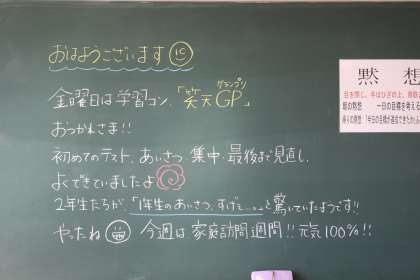 おはようございます
金曜日は学習コン、「笑天GP」
グランプリ
おつかれさま!!
初めてのテスト、あいさつ 集中 最後まで見直し、
よくできていましたよ
2年生たちが、「1年生のあいさつ、すげぇ…。」と驚いていたようです!!
やったね 今週は、家庭訪問週間!! 元気100%!!
黙想